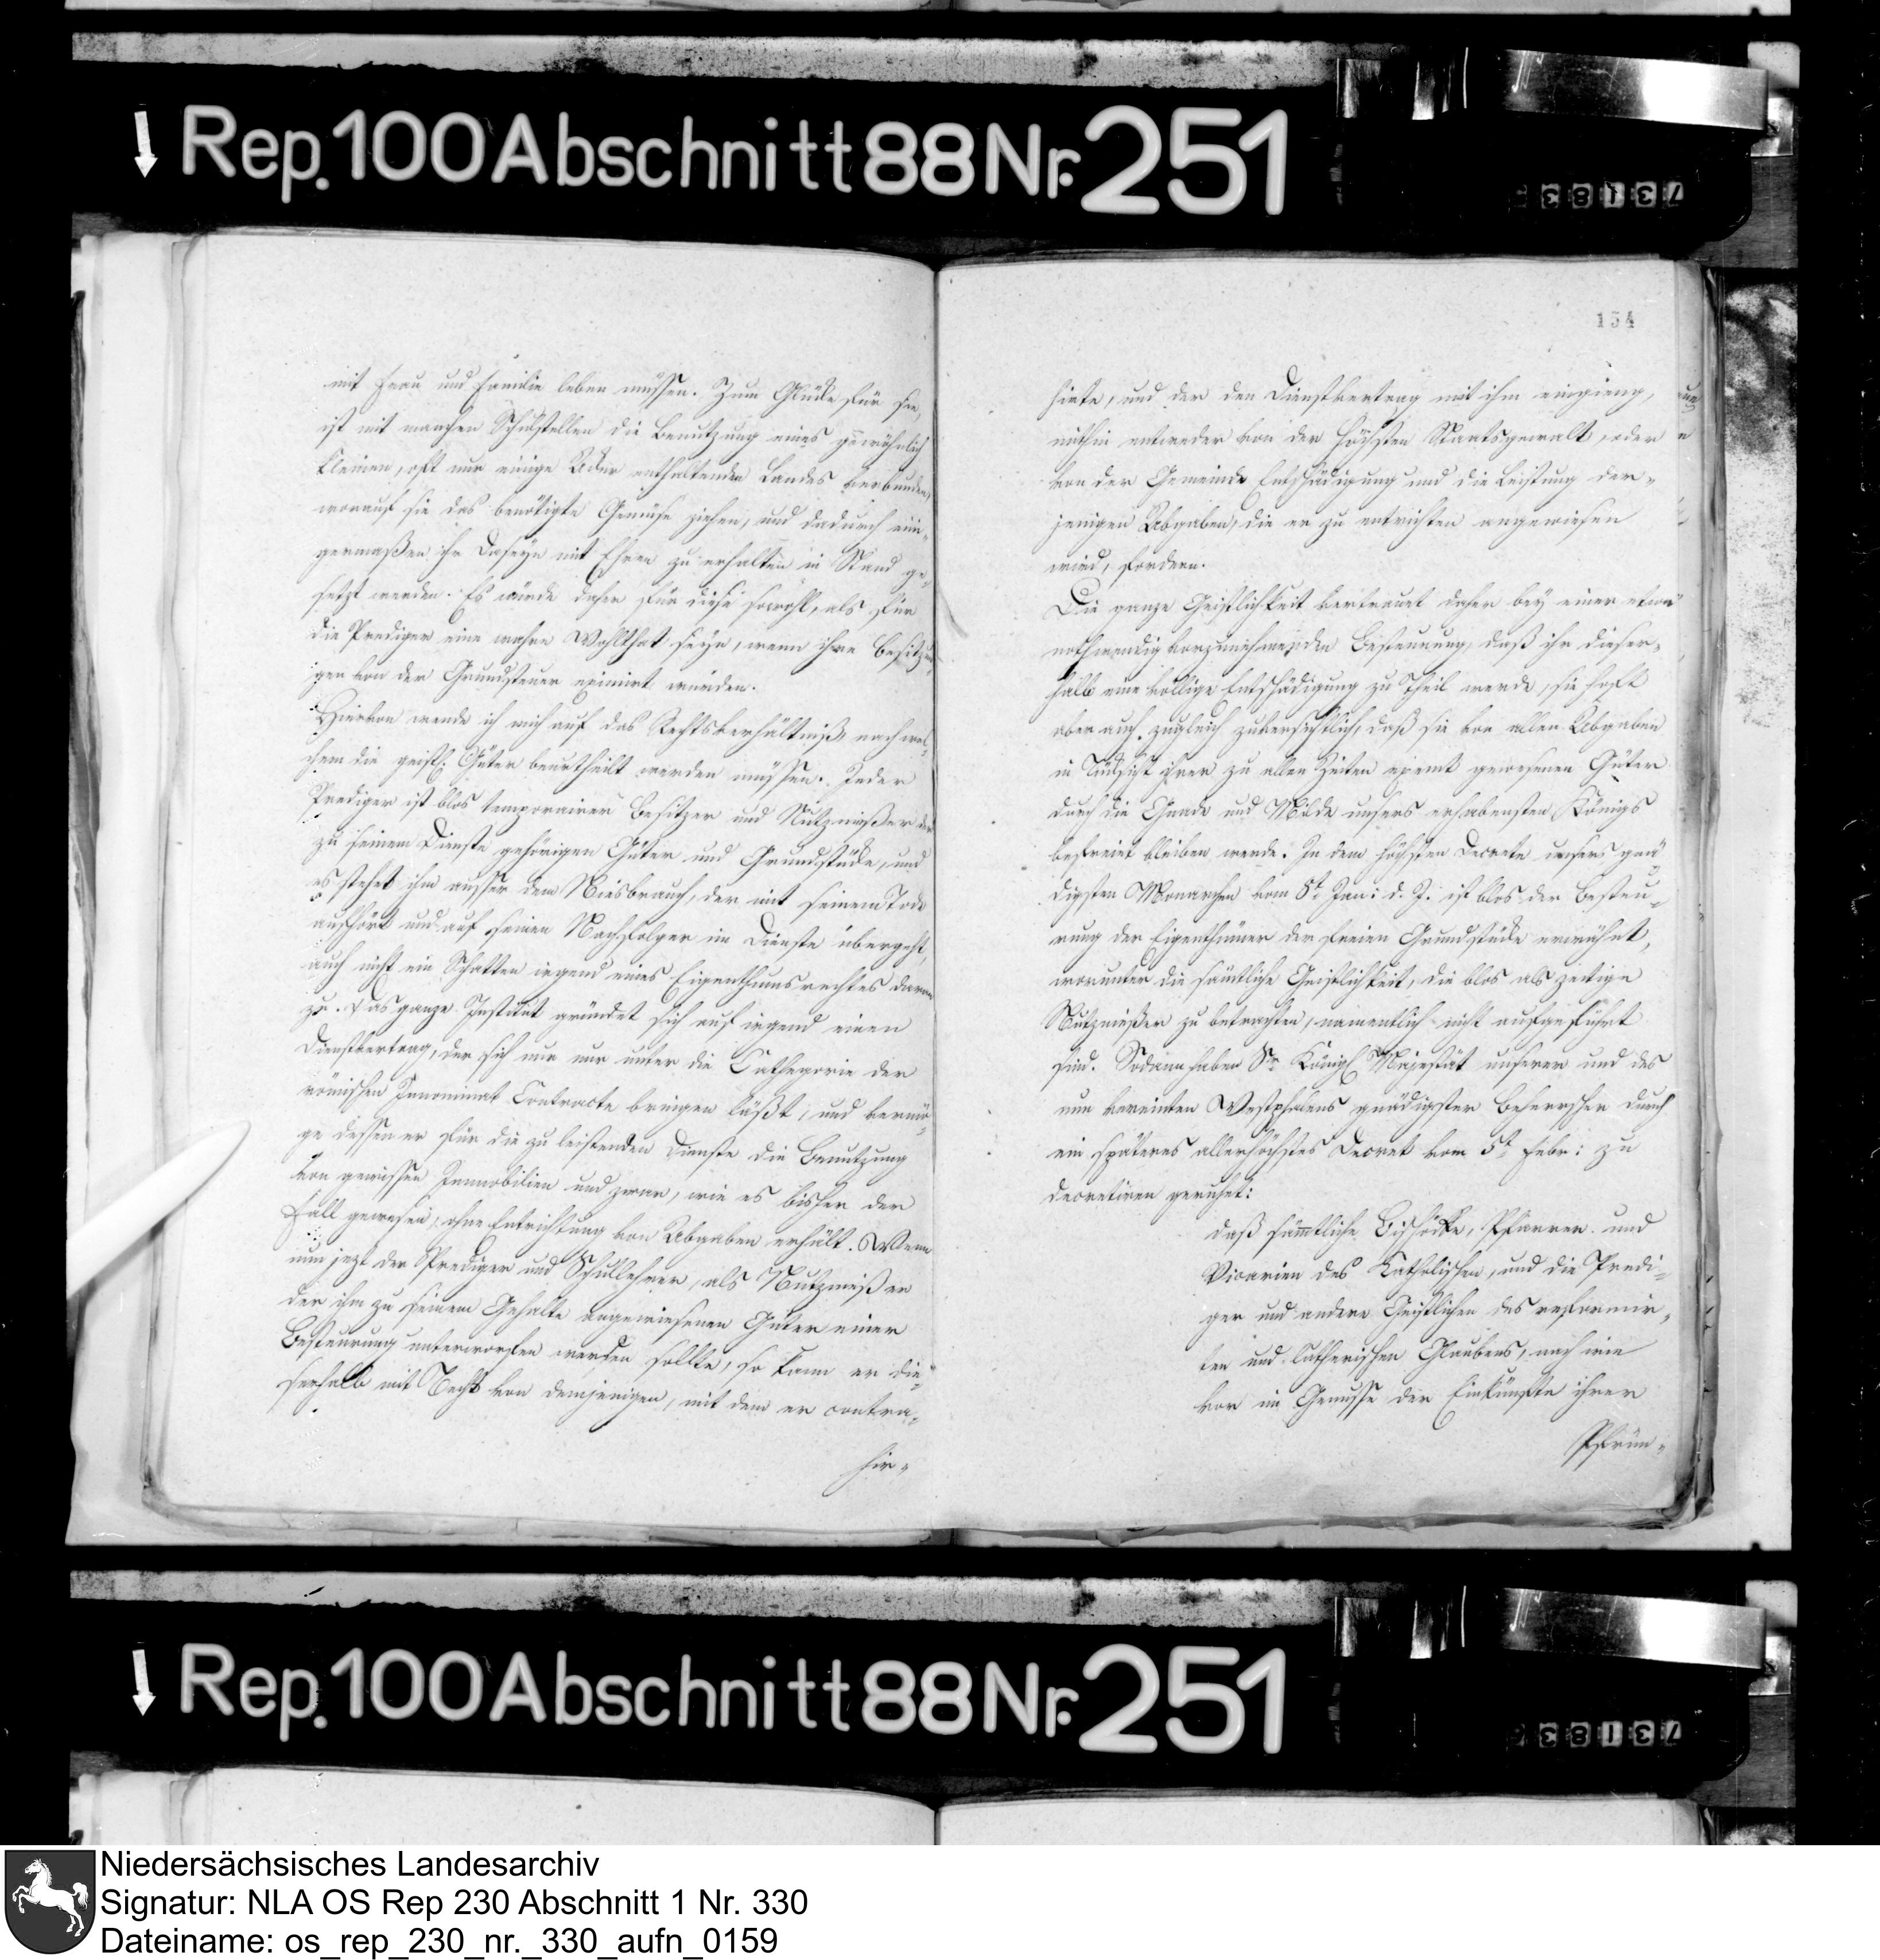 Rep. 100 Abschnitt 88 Nr. 251
73183
mit Frau und Familie leben müssen. Zum Glücke für sie,
ist mit manchen Schulstellen die Benutzung eines gewöhnlich
kleinen, oft nur einige Acker enthaltenden Landes verbunden,
worauf sie das benötigte Gemüse ziehen, und dadurch eini-
germaßen ihr Daseyn mit Ehren zu erhalten in Stand ge-
setzt werden. Es würde daher für diese sowohl, als für
die Prediger eine wahre Wohlthat seyn, wenn ihre Besitzun-
gen von der Grundsteuer eximirt würden.
Hiervon wende ich mich auf das Rechtsverhältniß nach wel-
chem die geistl. Güter beurtheilt werden müssen. Jeder
Prediger ist blos temporairer Besitzer und Nutznießer der
zu seinem Dienste gehörigen Güter und Grundstücke, und
es stehet ihm ausser dem Niesbrauch, der mit seinem Tode
aufhört und auf seinen Nachfolger im Dienste übergeht,
auch nicht ein Schatten irgend eines Eigenthumsrechtes daran
zu. Das ganze Institut gründet sich auf irgend einen
Dienstvertrag, der sich nur unter die Cathegorie der
römischen Innominat Contracte bringen läßt, und vermö-
ge dessen er für die zu leistenden Dienste die Benutzung
von gewissen Immobilien und zwar, wie es bisher der
Fall gewesen, ohne Entrichtung von Abgaben erhält. Wenn
nun jezt der Prediger und Schullehrer, als Nutznießer
der ihm zu seinem Gehalte angewiesenen Güter einer
Besteurung unterworfen werden sollte, so kann er die-
serhalb mit Recht von demjenigen, mit dem er contra-
hir-
134
hirte, und der den Dienstvertrag mit ihm eingieng,
mithin entweder von der höchsten Staatsgewalt, oder
von der Gemeinde Entschädigung und die Leistung der-
jenigen Abgaben, die er zu entrichten angewiesen
wird, fordern.
Die ganze Geistlichkeit vertrauet daher bey einer etwa
nothwendig vorzunehmenden Besteurung, daß ihr dieser-
halb eine völlige Entschädigung zu Theil werde, sie hoft
aber auch zugleich zuversichtlich, daß sie von allen Abgaben
in Rücksicht ihrer zu allen Zeiten exemt gewesenen Güter
durch die Gnade und Milde unsers erhabensten Königs
befreiet bleiben werde. In dem höchsten Decrete unsers gnä-
digsten Monarchen vom 8t Jan: d. J. ist blos der Besteu-
rung der Eigenthümer der freien Grundstücke erwähnt,
worunter die sämtliche Geistlichkeit, die blos als zeitige
Nutznießer zu betrachten, namentlich nicht aufgeführt
sind. Sodann haben Sr Königl Majestät unserer und des
nun vereinten Westphalens gnädigster Beherrscher durch
ein späteres allerhöchstes Decret vom 5t Febr: zu
decretiren geruhet:
daß sämmtliche Bischöfe, Pfarrer und
Vicarien des Katholischen, und die Predi-
ger und andere Geistlichen des reformir-
ten und lutherischen Glaubens, nach wie
vor im Genusse der Einkünfte ihrer
Pfrün-
Rep. 100 Abschnitt 88 Nr. 251
73183
Niedersächsisches Landesarchiv
Signatur: NLA OS Rep 230 Abschnitt 1 Nr. 330
Dateiname: os_rep_230_nr._330_aufn_0159